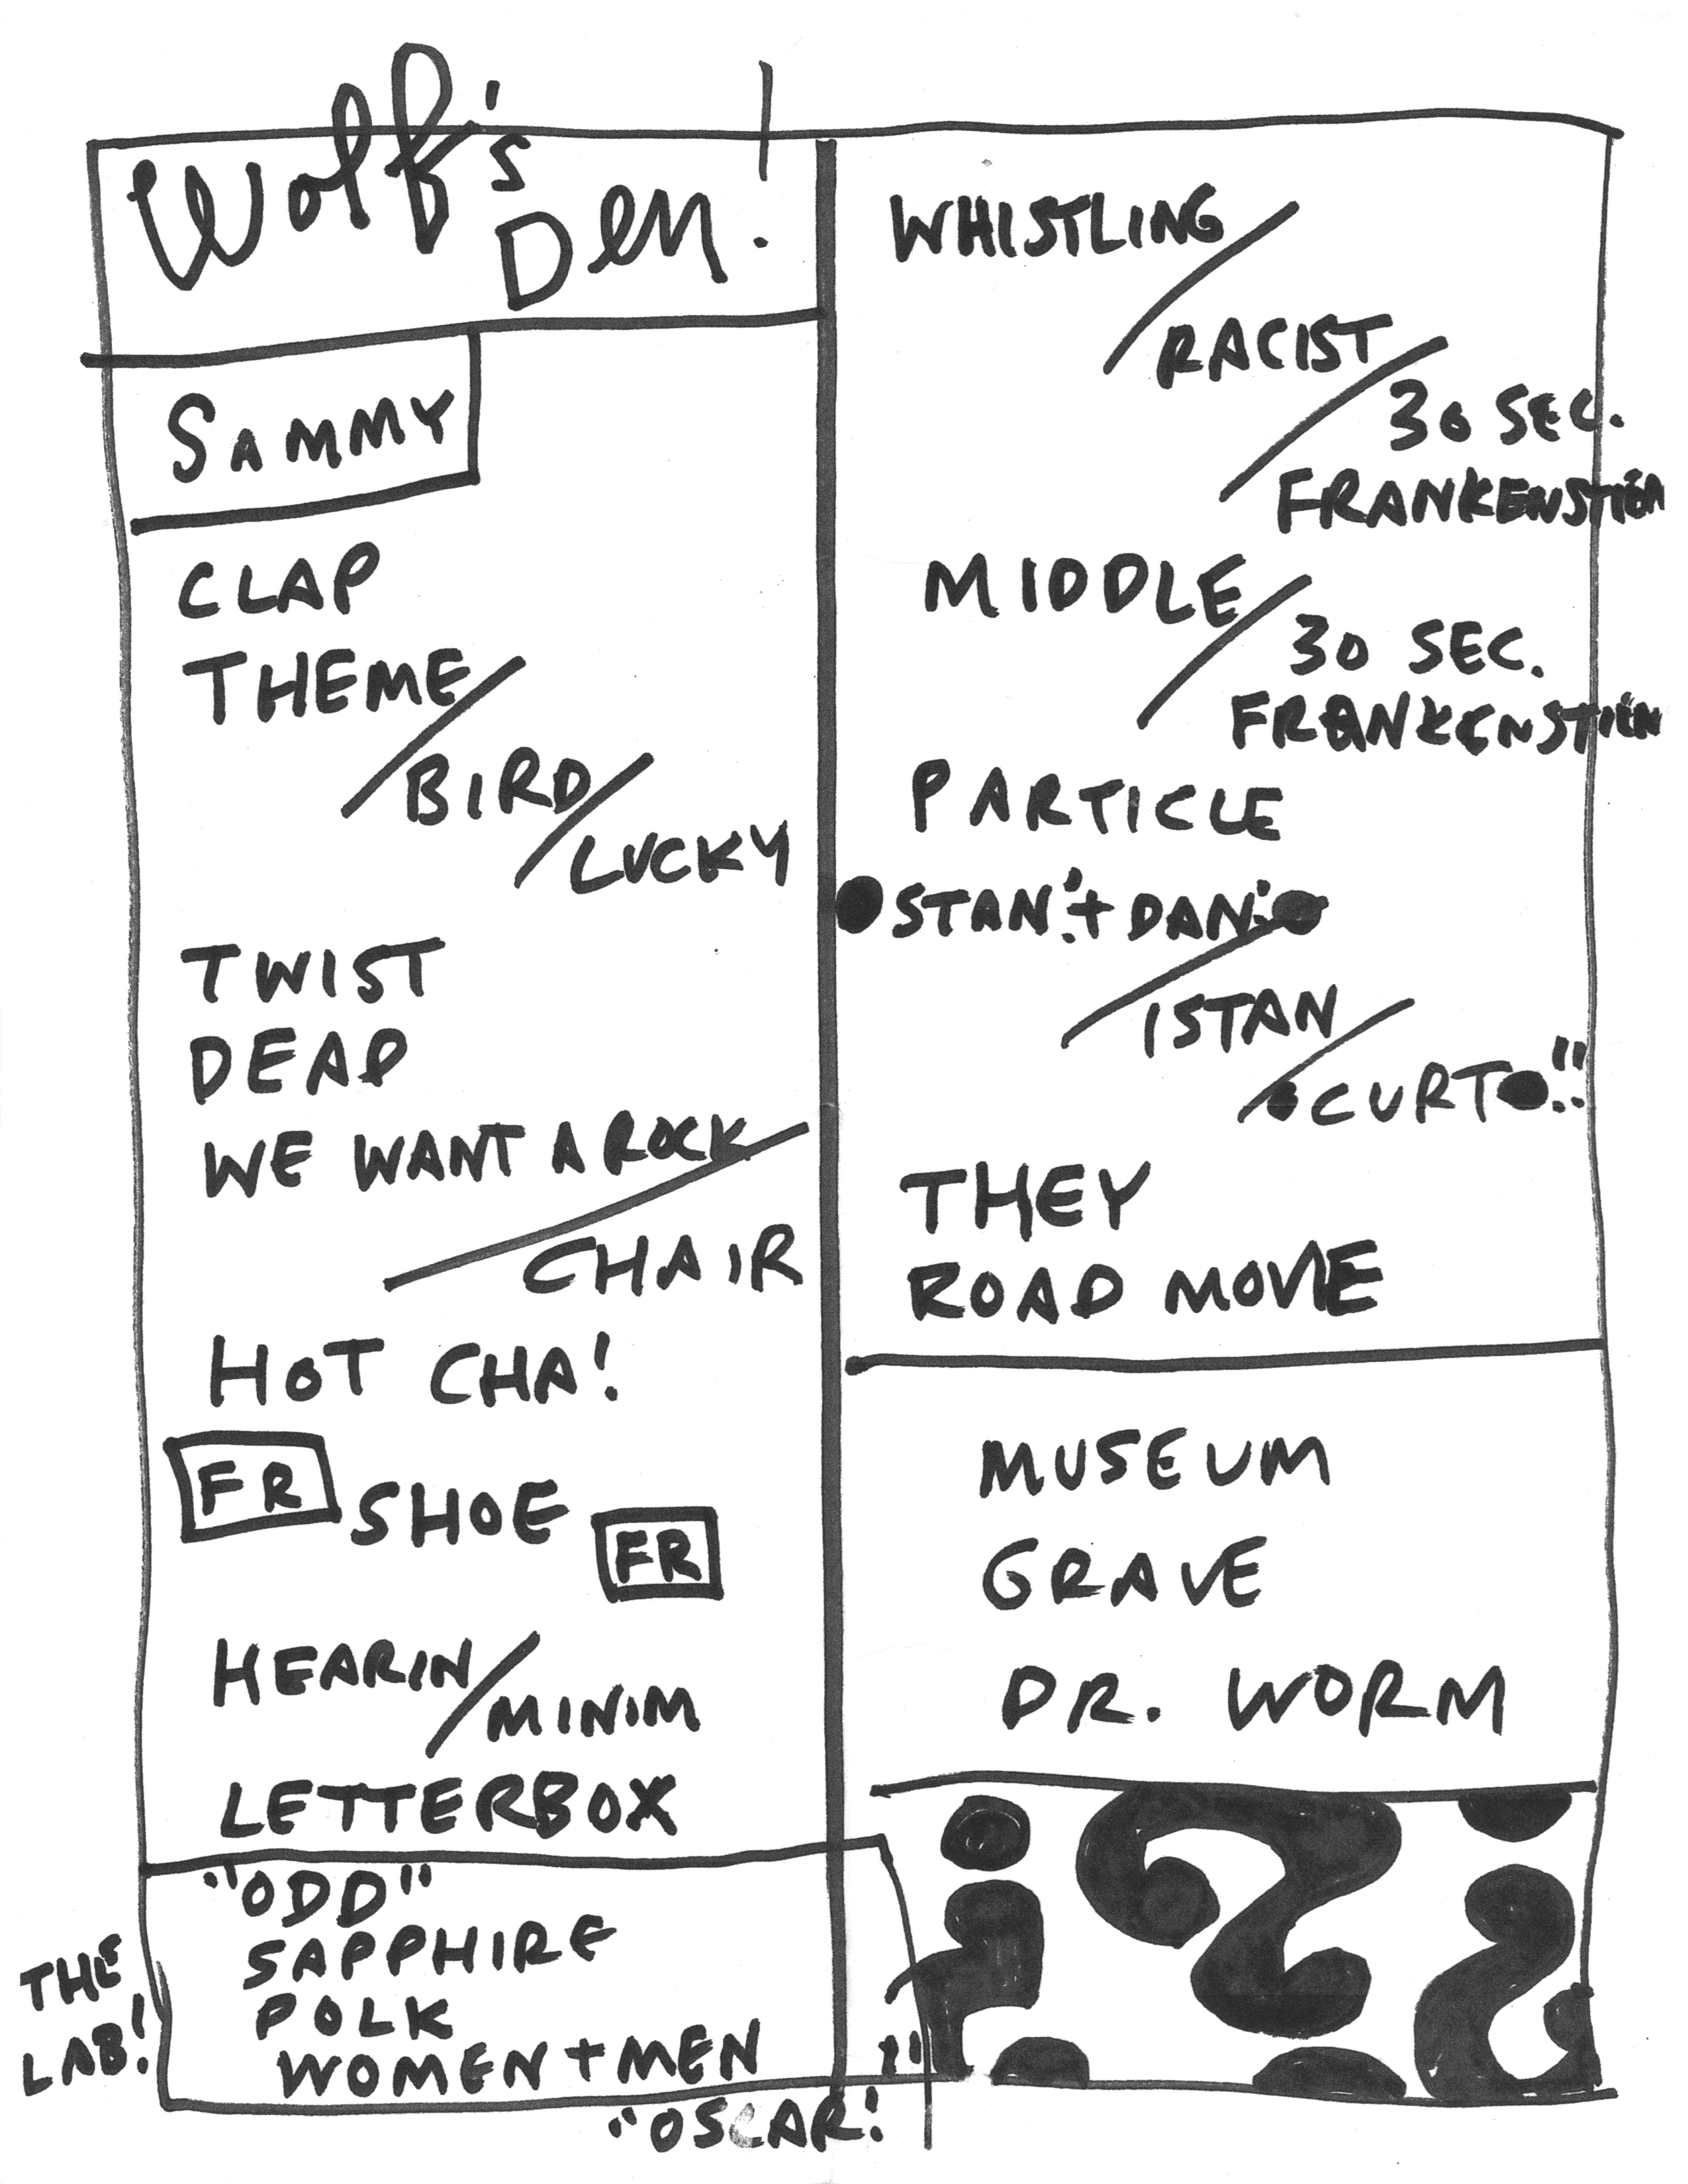 Wolf's
Den!
SAMMY
CLAP
THEME/
BIRD/
LUCKY
TWIST
DEAD
WE WANT A ROCK/
CHAIR
HOT CHA!
FR SHOE FR
HEARIN/
MINIM
LETTERBOX
"ODD"
SAPPHIRE
POLK
WOMEN + MEN
THE
LAB!
"OSCAR!"
WHISTLING/
RACIST/
30 SEC.
FRANKENSTIEN
MIDDLE/
30 SEC.
FRANKENSTIEN
PARTICLE
STAN! + DAN!
/ISTAN
/CURT!!
THEY
ROAD MOVIE
MUSEUM
GRAVE
DR. WORM